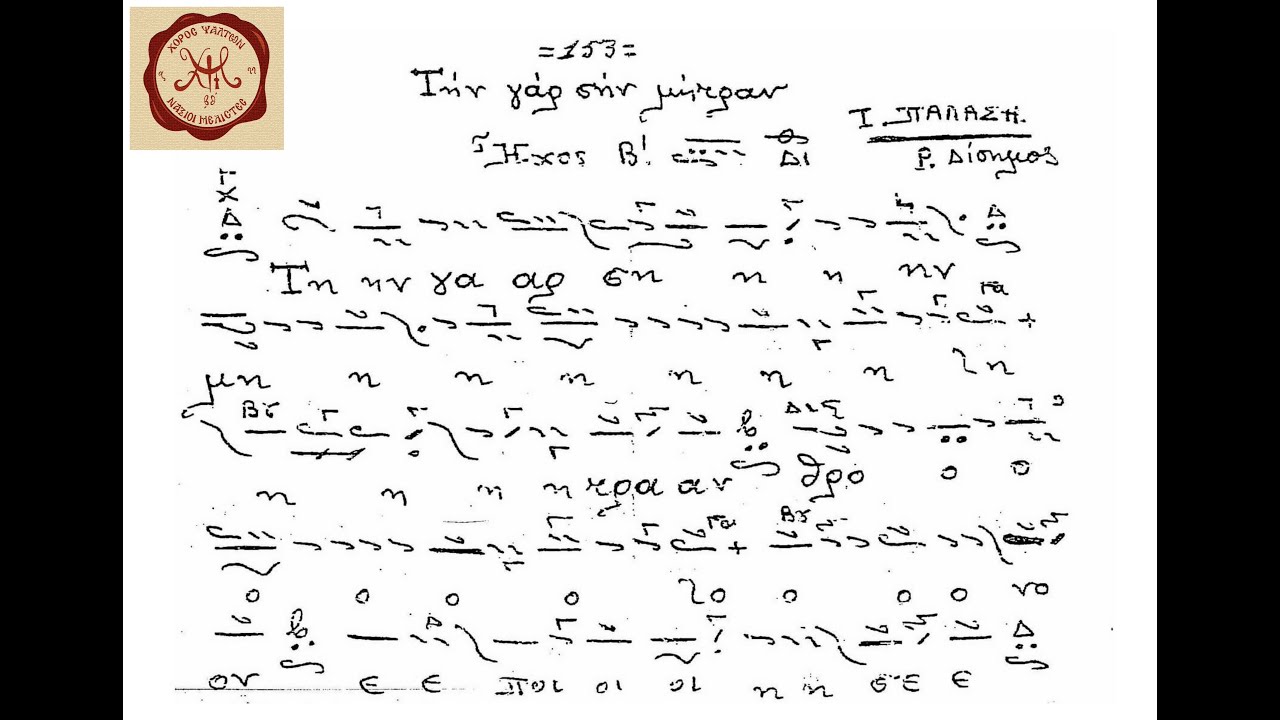 ΧΟΡΟΣ ΨΑΛΤΩΝ
ΝΑΞΙΟΙ ΜΕΛΙΣΤΕΣ
=153=
Τήν γάρ σήν μήτραν
Ι. ΠΑΛΑΣΗ.
Ἦχος Β' Δι
Ρ. Δίσημος
Τη ην γα αρ ση η η ην
Γα
μη η η η η η η η
Βου Δι
η η η η τρα αν θρο ο ο
Γα Βου
ο ο ο ο ο ο ο ο νο
ον ε ε ποι οι οι η η σε ε